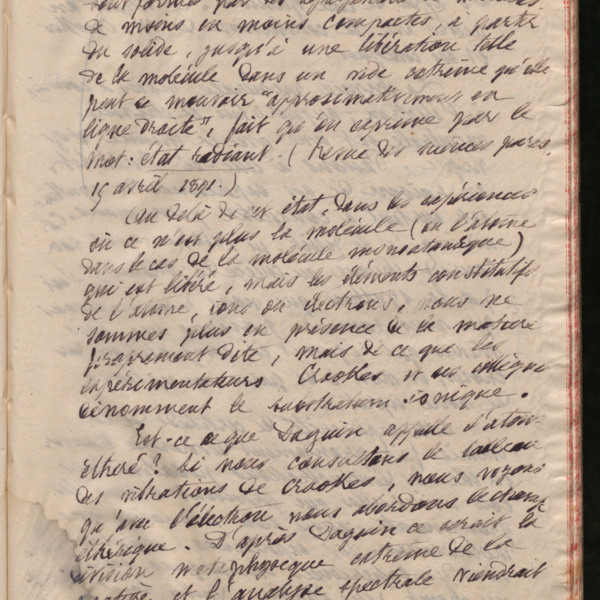 sont formés par des
de moins en moins compactes, à partir
du solide, jusqu'à une libération telle
de la molécule dans un vide extrême qu'elle
peut se mouvoir "approximativement en
ligne droite", fait qu'on exprime par le
mot : état radiant. (Revue des sciences pures,
15 avril 1891.)
Au delà de cet état, dans les expériences
où ce n'est plus la molécule (ou l'atome
dans le cas de la molécule monoatomique)
qui est libéré, mais les éléments constitutifs
de l'atome, ions ou électrons, nous ne
sommes plus en présence de la matière
proprement dite, mais de ce que les
expérimentateurs Crookes et ses collègues
dénomment le substratum ionique.
Est-ce ce que Daguin appelle l'atome
éthéré? Si nous consultons le tableau
des vibrations de Crookes, nous voyons
qu'avec l'électron nous abordons le champ
éthérique. D'après Daguin ce serait la
division physique extrême de la
matière et l'analyse spectrale viendrait